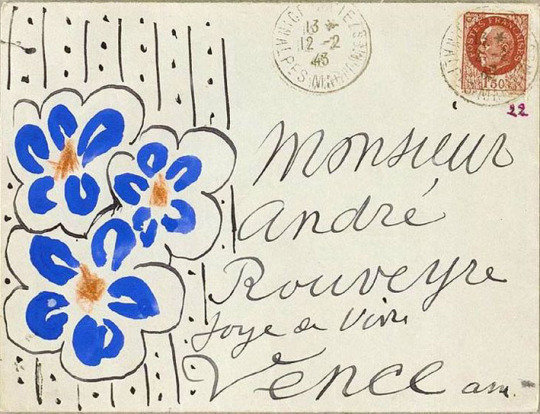 13 *
12 -2
43
ALPES MARITIMES
POSTES FRANÇAISES
1F50
22
Monsieur
André
Rouveyre
Joye de Vivre
Vence am.